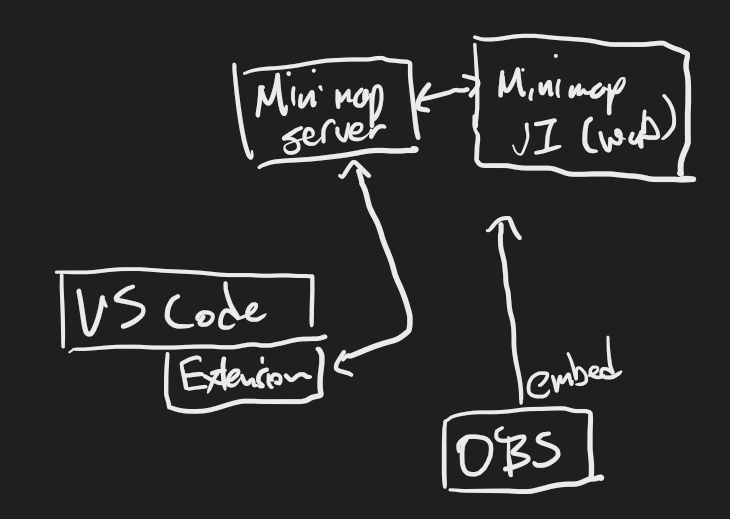 Minimap
server
Minimap
UI (web)
VS Code
Extension
embed
OBS